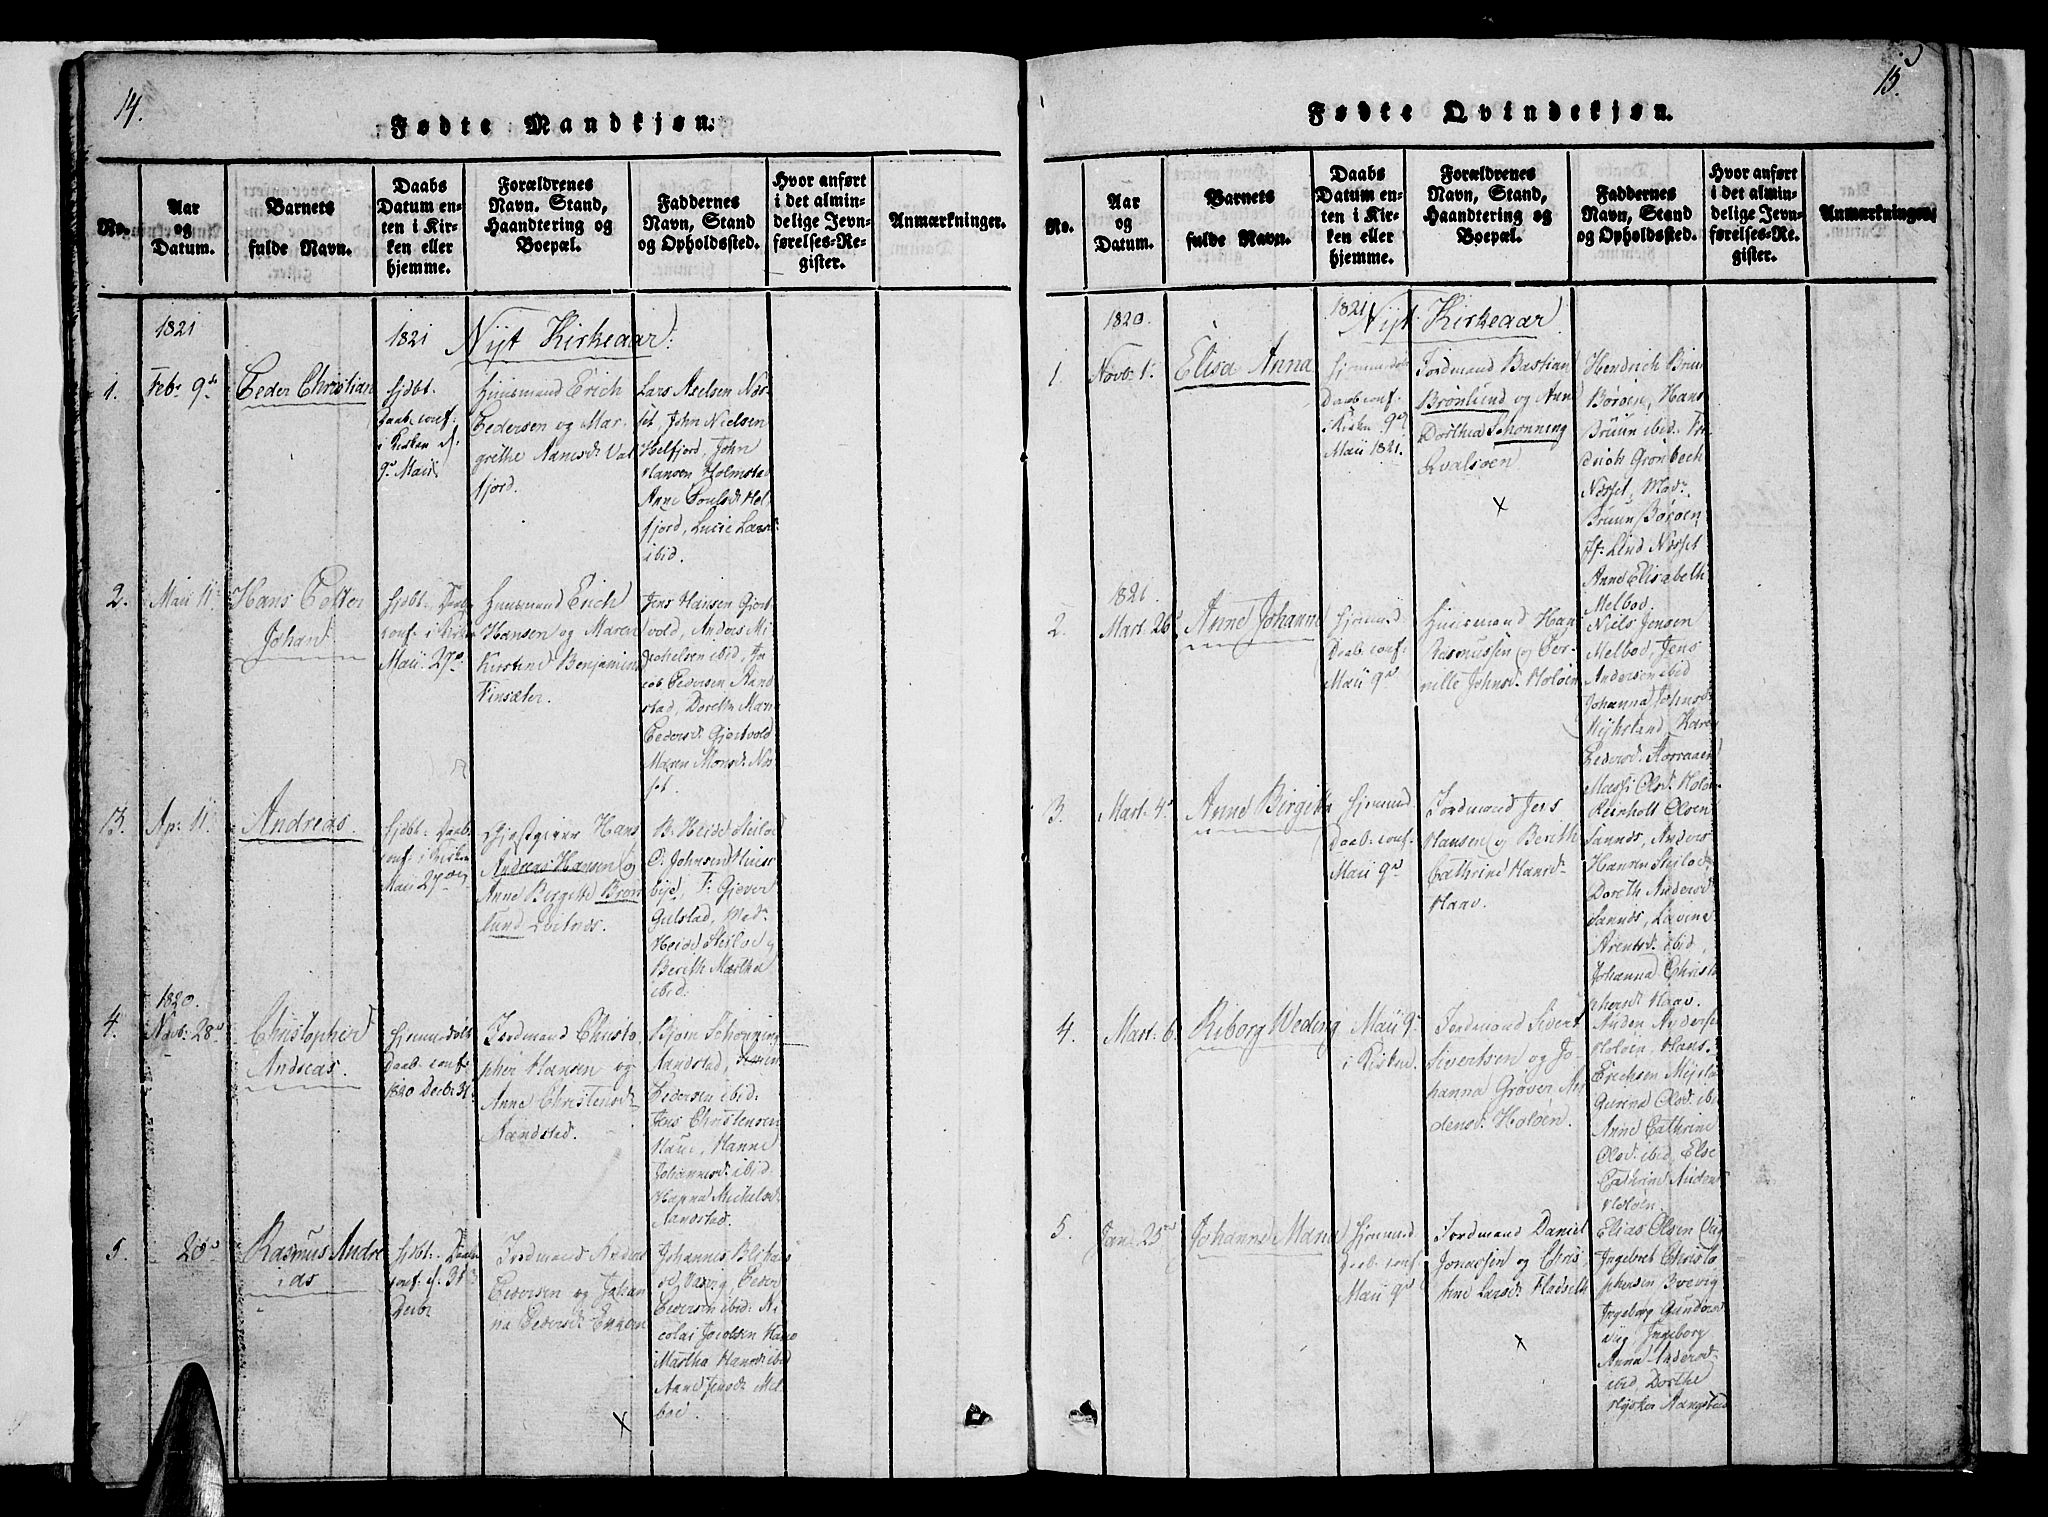 14.
Fødte Mandkjøn.
No.
Aar
og
Datum.
Barnets
fulde Navn.
Daabs
Datum en-
ten i Kir-
ken eller
hjemme.
Forældrenes
Navn, Stand,
Haandtering og
Boepæl.
Faddernes
Navn, Stand
og Opholdssted.
Hvor anført
i det almin-
delige Jevn-
førelses-Re-
gister.
Anmærkninger.
1821
1821
Nyt Kirkeaar:
1.
Febr 9de
Peder Christian
hjdbt:
Daab conf.
i Kirken d.
9de Maii
Huusmand Erich
Pedersen og Mar-
grethe Aanesd: Val
fjord.
Lars Axelsen Næs-
set, John Nielsen
Helfjord, John
Hansen Holmstad
Anne Poulsd: Hel
fjord, Lucie Larsd:
ibid.
2.
Maii 11te
Hans Petter
Johan
hjdbt: Daab
conf: i Kirken
Maii 27de
Huusmand Erich
Hansen og Maren
Kirstine Benjamins
Finsæter.
Jens Hansen Gjert
vold, Anders Mi
chelsen ibid, Ja
cob Pedersen Sand
stad, Dorethe Mari
Pedersd: Gjertvold
Maren Monsd: Næs
set.
3.
Ap: 11te
Andreas
hjdbt: Daab
conf i Kirken
Maii 27de
Gjæstgiver Hans
Andreas Hansen og
Anne Birgitte Bron
lund
B. Heide Skilvo
O: Johnsen Huse
bye, F: Gjever
Gulstad, Mad:
Heide Skilvo og
Berith Martha
ibid.
1820.
4.
Novb: 28de
Christopher
Andreas.
hjemmedøbt
Daab conf.
1820 Decbr 31
Jordmand Christo
pher Hansen og
Anne Christensd:
Sandstad.
Schønning
Sandstad,
Pedersen ibid:
Jens Christensen
Haue, Hanne
Johannesd: ibid
Hanna Michelsd:
Sandstad.
5.
26de
Rasmus Andre
as
hjdbt: Daab
conf. d. 31
Decbr
Jordmand
Pedersen og Johan
na Pedersd:
Johannes
Peder
Pedersen ibid: Ni
colai Jacobsen
Martha Hansd: ibid
Mel
boe.
15.
Fødte Qvindekjøn.
No.
Aar
og
Datum.
Barnets
fulde Navn.
Daabs
Datum en-
ten i Kir-
ken eller
hjemme.
Forældrenes
Navn, Stand,
Haandtering og
Boepæl.
Faddernes
Navn, Stand
og Opholdssted.
Hvor anført
i det almin-
delige Jevn-
førelses-Re-
gister.
Anmærkninger.
1820.
1821
Nyt Kirkeaar.
1.
Novb: 1.
Elisa Anna
hjemmedøbt
Daab conf.
i Kirken 9de
Maii 1821.
Jordmand Bastian
Brønlund og Ann
Dorthea Schønning
Qvalsøen
Hendrich Bruun
Børøen, Hans
Bruun ibid. Fre
drich Grønbech
Næsset, Mad:
Bruun Børøen,
Jf: Lind Næsset
Anne Elisabeth
Melboe.
1821.
2.
Mart. 26de
Anne Johanne
hjemmed:
Daab. conf.
Maii 9de
Huusmand Hans
Rasmussen og Per-
nille Johnsd: Holøen
Niels Jensen
Melboe, Jens
Andersen ibid
Johanna Johnsd:
Karen
Pedersd:
Massi Olsd: Holøen
3.
Mart: 4de
Anne Birgitta
hjemmed:
Daab: conf:
Maii 9de
Jordmand Jens
Hansen og Berith
Cathrine Hansd:
Haav.
Reinholt Olsen
Sannæs, Anders
Hansen
Doreth Andersd:
Sannæs, Lovine
Arentsd: ibid,
Johanna Christo
phersd: Haav.
4.
Mart: 6.
Riborg Weding
Maii 9de
i Kirken.
Jordmand Sivert
Sivertsen og Jo
hanna Grøver An
densd: Holøen.
Anden Andersen
Holøen, Hans
Erichsen
Gurina Olsd: ibid
Anne Cathrine
Olsd: ibid, Else
Cathrine Andens
Holøen.
5.
Jan: 25de
Johanna Maria
hjemmed:
Daab: conf:
Maii 9de
Jordmand Daniel
Jonassen og Chris
tine Larsd: Hadselh
Elias Olsen Vig
Ingebret Christo
phersen Brevig
Ingeborg Gundersd:
Vig, Ingeborg
Anna Andersd:
ibid, Dorthe